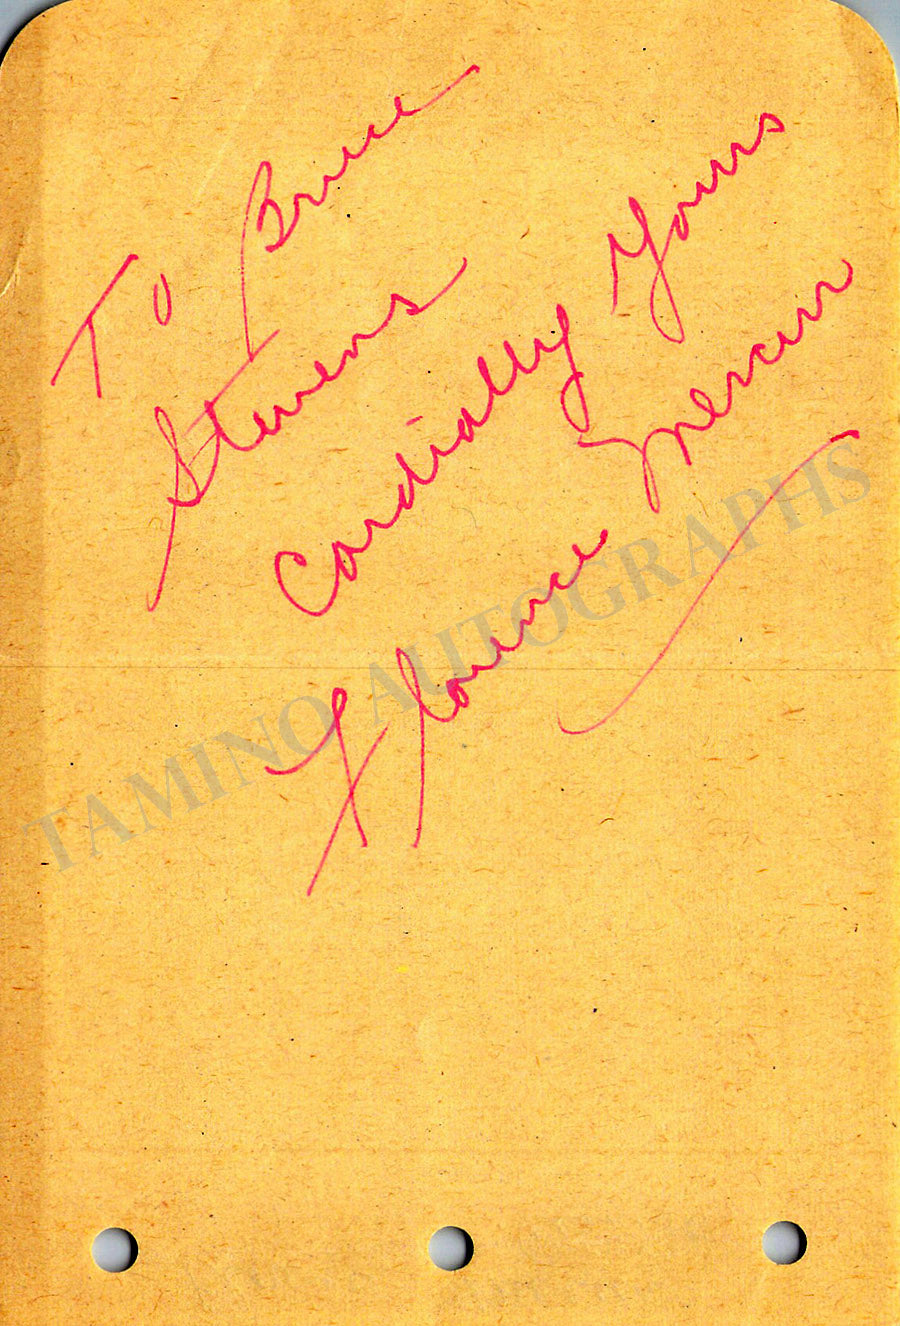 To Bruce
Stevens
Cordially Yours
Florence Mercur
TAMINO AUTOGRAPHS